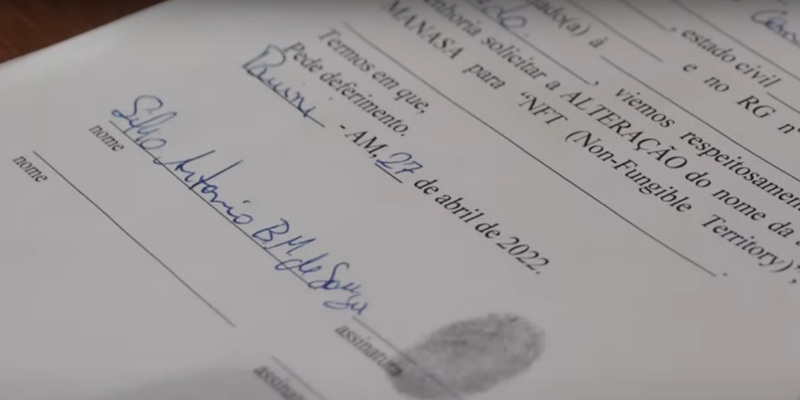 jado(a) à
, estado civil
e no RG nº
enhoria solicitar a ALTERAÇÃO do nome da
, viemos respeitosamen
MANASA para “NFT (Non-Fungible Territory)”,
Termos em que,
Pede deferimento,
- AM, 27 de abril de 2022.
Silvio Antonio B. M. de Souza
nome
assinatura
nome
assinatu